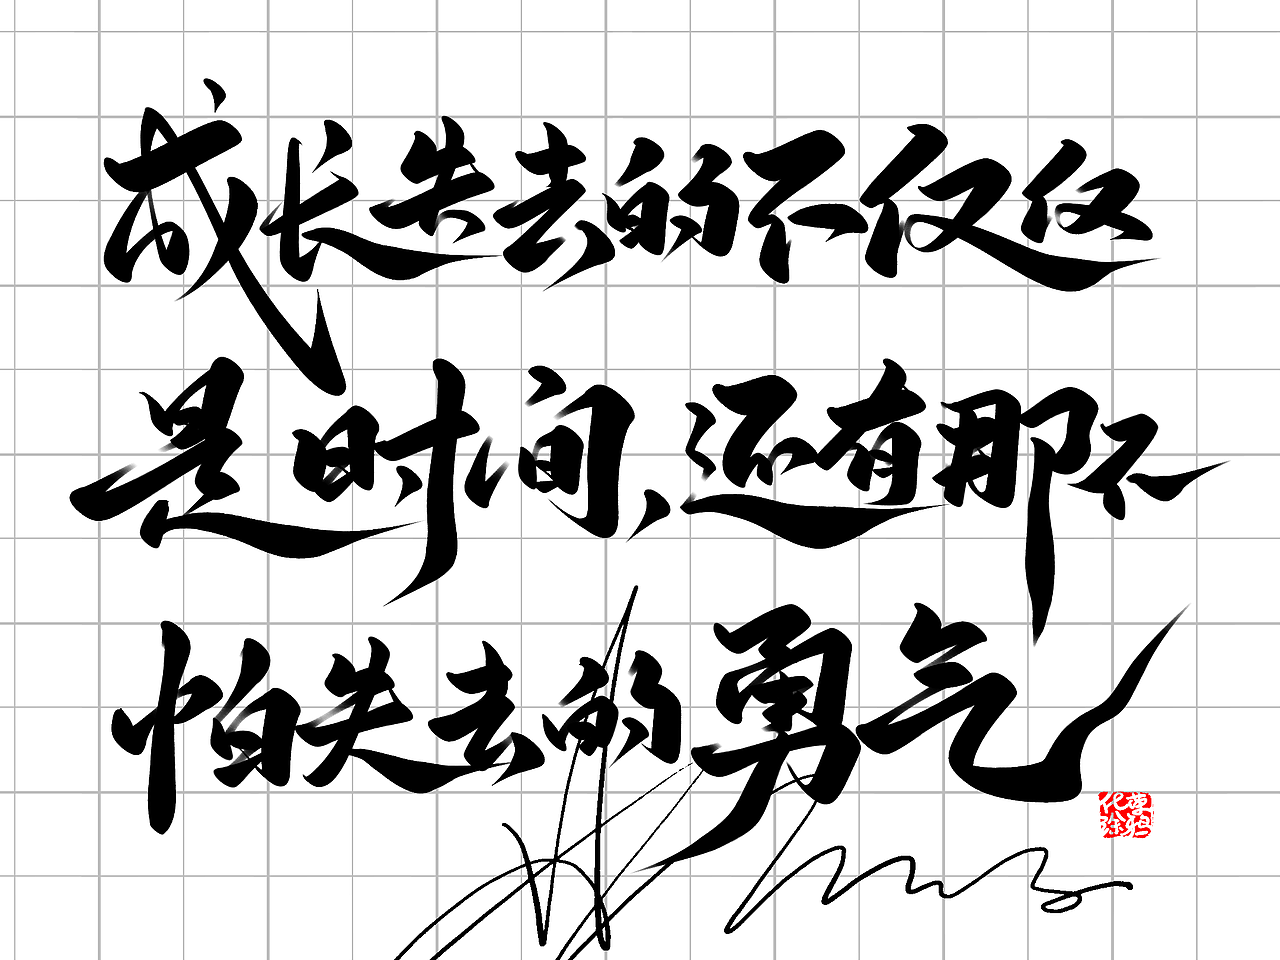 成长失去的不仅仅
是时间、还有那不
怕失去的勇气